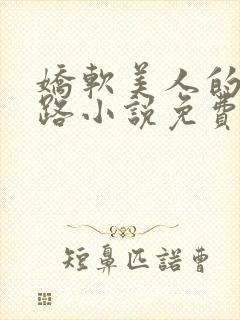 嬌軟美人的
路小說免費
短鼻匹諾曹